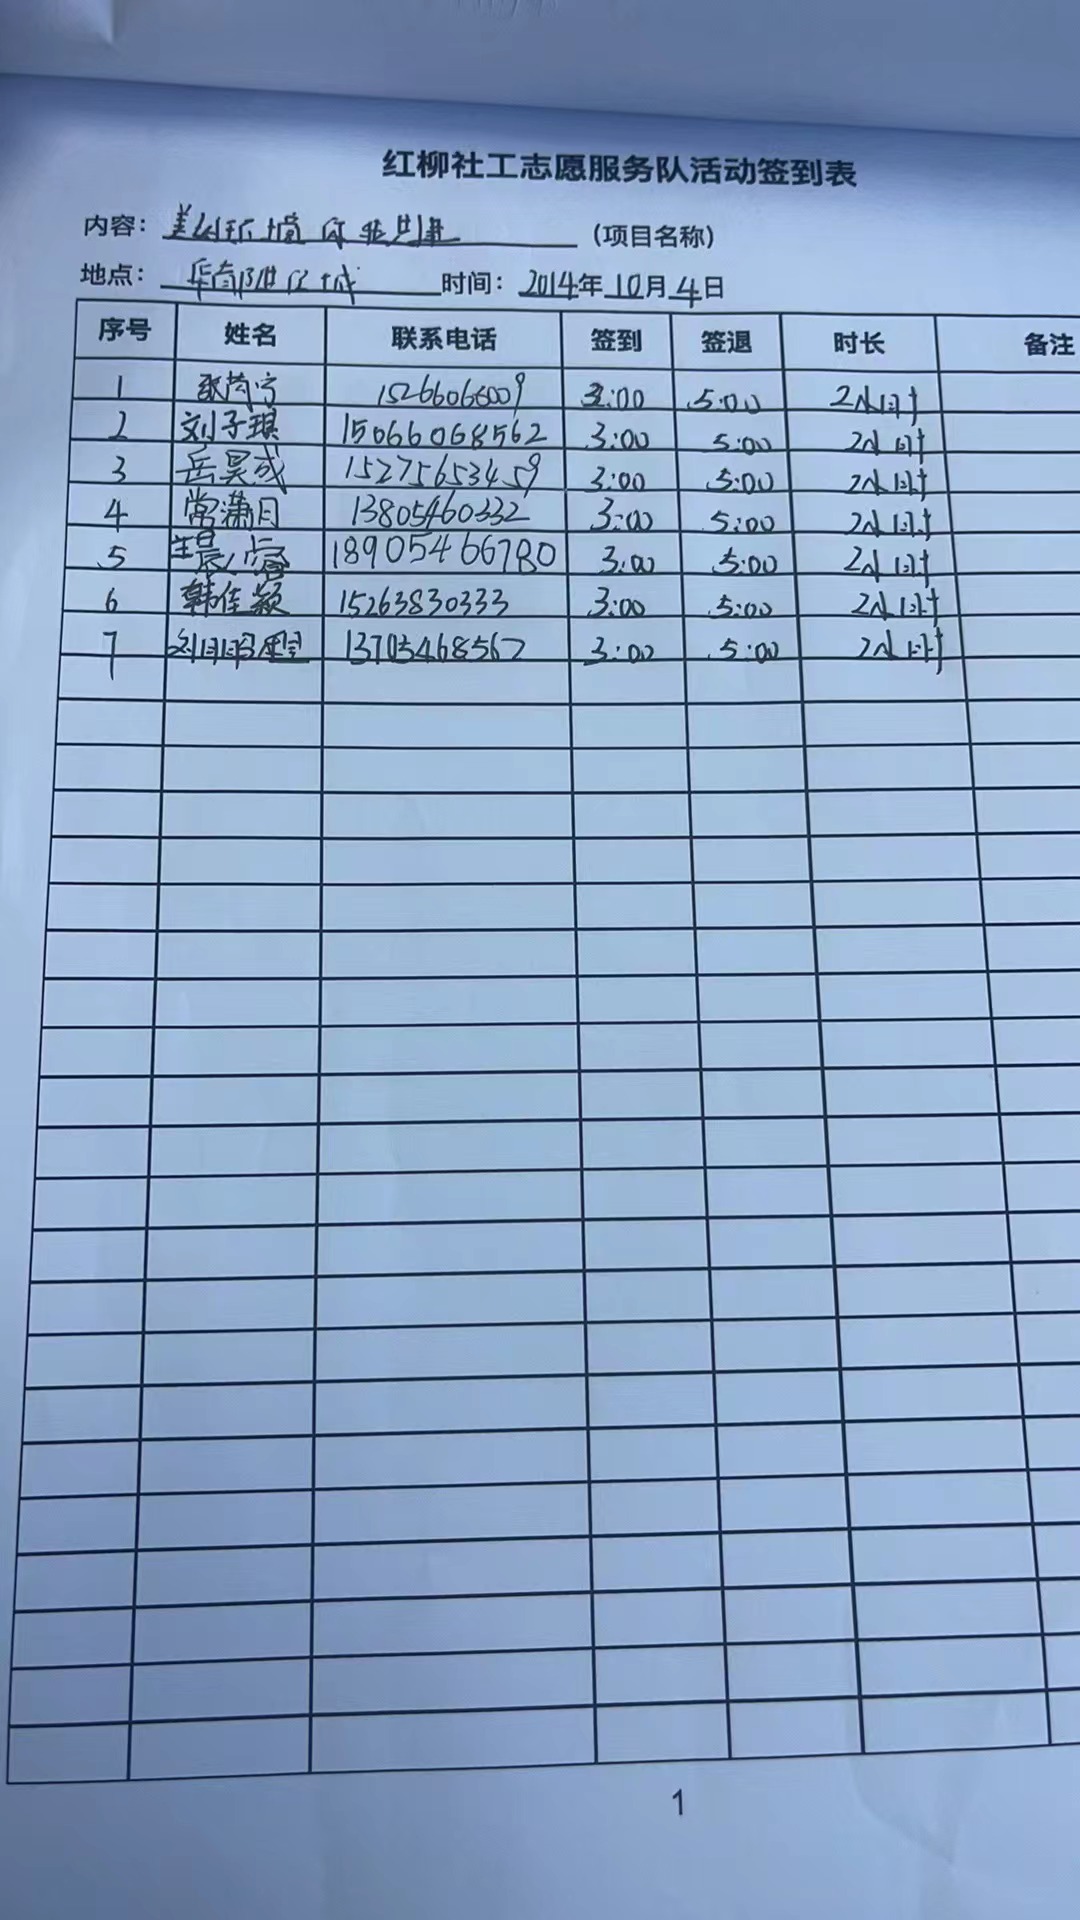 红柳社工志愿服务队活动签到表
内容: 美化环境你我共建 (项目名称)
地点: 时间: 2014年10月4日
序号 姓名 联系电话 签到 签退 时长 备注
1 15266066009 3:00 5:00 2小时
2 刘子琪 15066068562 3:00 5:00 2小时
3 岳昊成 15275653459 3:00 5:00 2小时
4 常潇月 13805460332 3:00 5:00 2小时
5 18905466780 3:00 5:00 2小时
6 韩佳颖 15263830333 3:00 5:00 2小时
7 13705468567 3:00 5:00 2小时
1